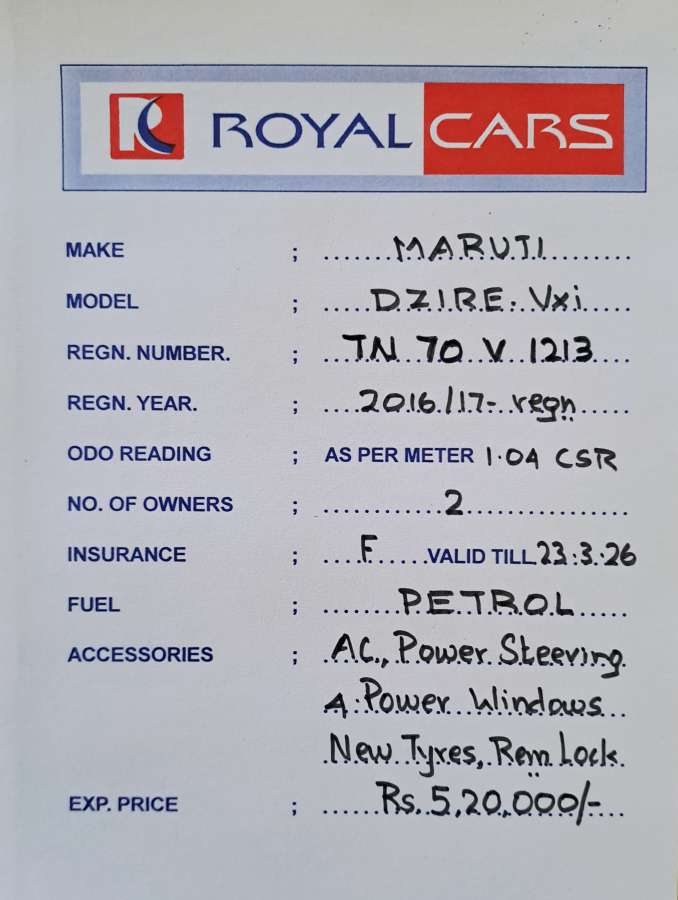 ROYAL CARS
MAKE ; MARUTI
MODEL ; DZIRE. Vxi
REGN. NUMBER. ; TN 70 V 1213
REGN. YEAR. ; 2016/17- regn
ODO READING ; AS PER METER 1.04 CSR
NO. OF OWNERS ; 2
INSURANCE ; F VALID TILL 23.3.26
FUEL ; PETROL
ACCESSORIES ; AC., Power Steering
4 Power Windows
New Tyres, Rem Lock
EXP. PRICE ; Rs. 5,20,000/-